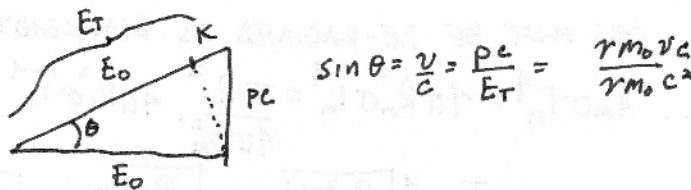 E_T
K
E_0
pc
θ
E_0
sin θ = v/c = pc/E_T = γm_0vc/γm_0c²